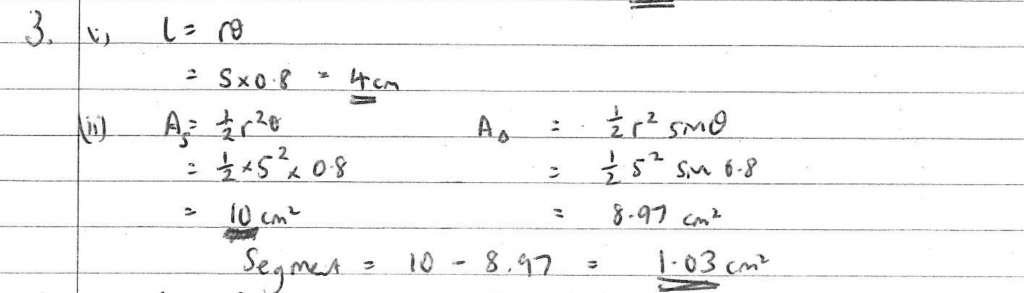 3. (i) l = rθ
= 5 x 0.8 = 4cm
(ii) A_S = ½ r²θ A_Δ = ½ r² sinθ
= ½ x 5² x 0.8 = ½ 5² sin 0.8
= 10 cm² = 8.97 cm²
Segment = 10 - 8.97 = 1.03 cm²